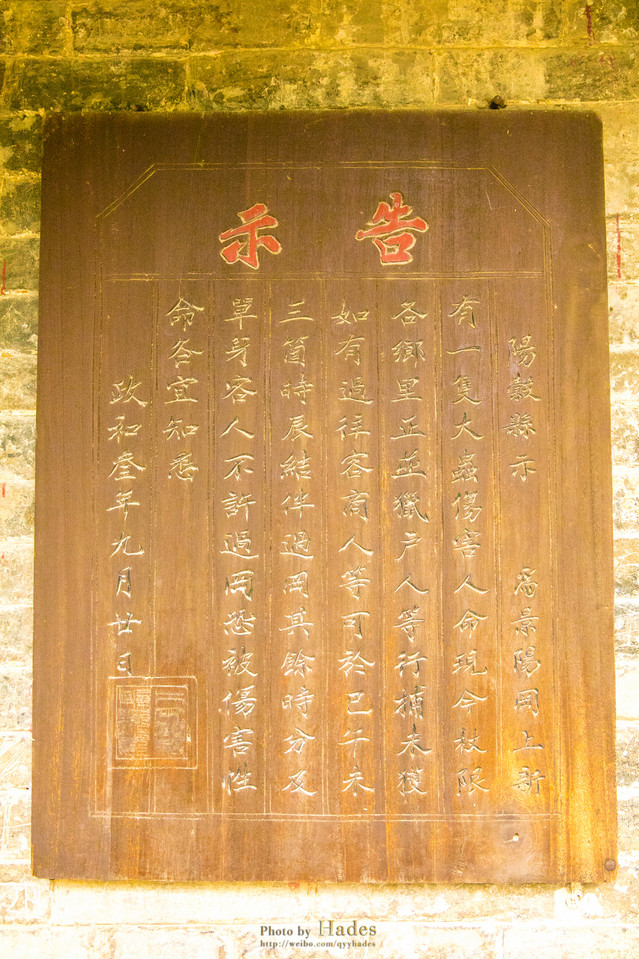 告示
陽穀縣示 為景陽岡上新
有一隻大蟲傷害人命現今杖限
各鄉里正並獵戶人等行捕未獲
如有過往客商人等可於巳午未
三箇時辰結伴過岡其餘時分及
單身客人不許過岡恐被傷害性
命各宜知悉
政和叁年九月廿日
Photo by Hades
http://weibo.com/qyyhades